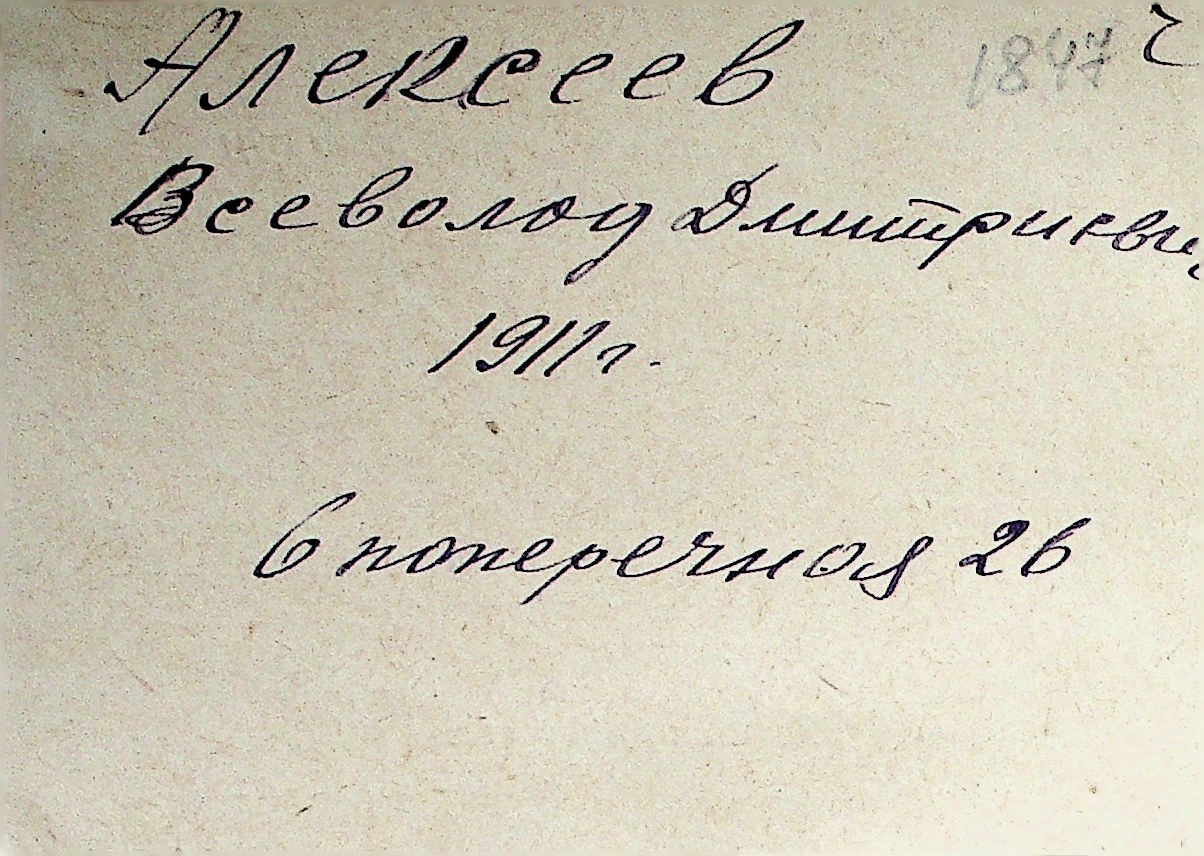 Алексеев 1847 г
Всеволод Дмитриевич
1911 г.
6 поперечная 26